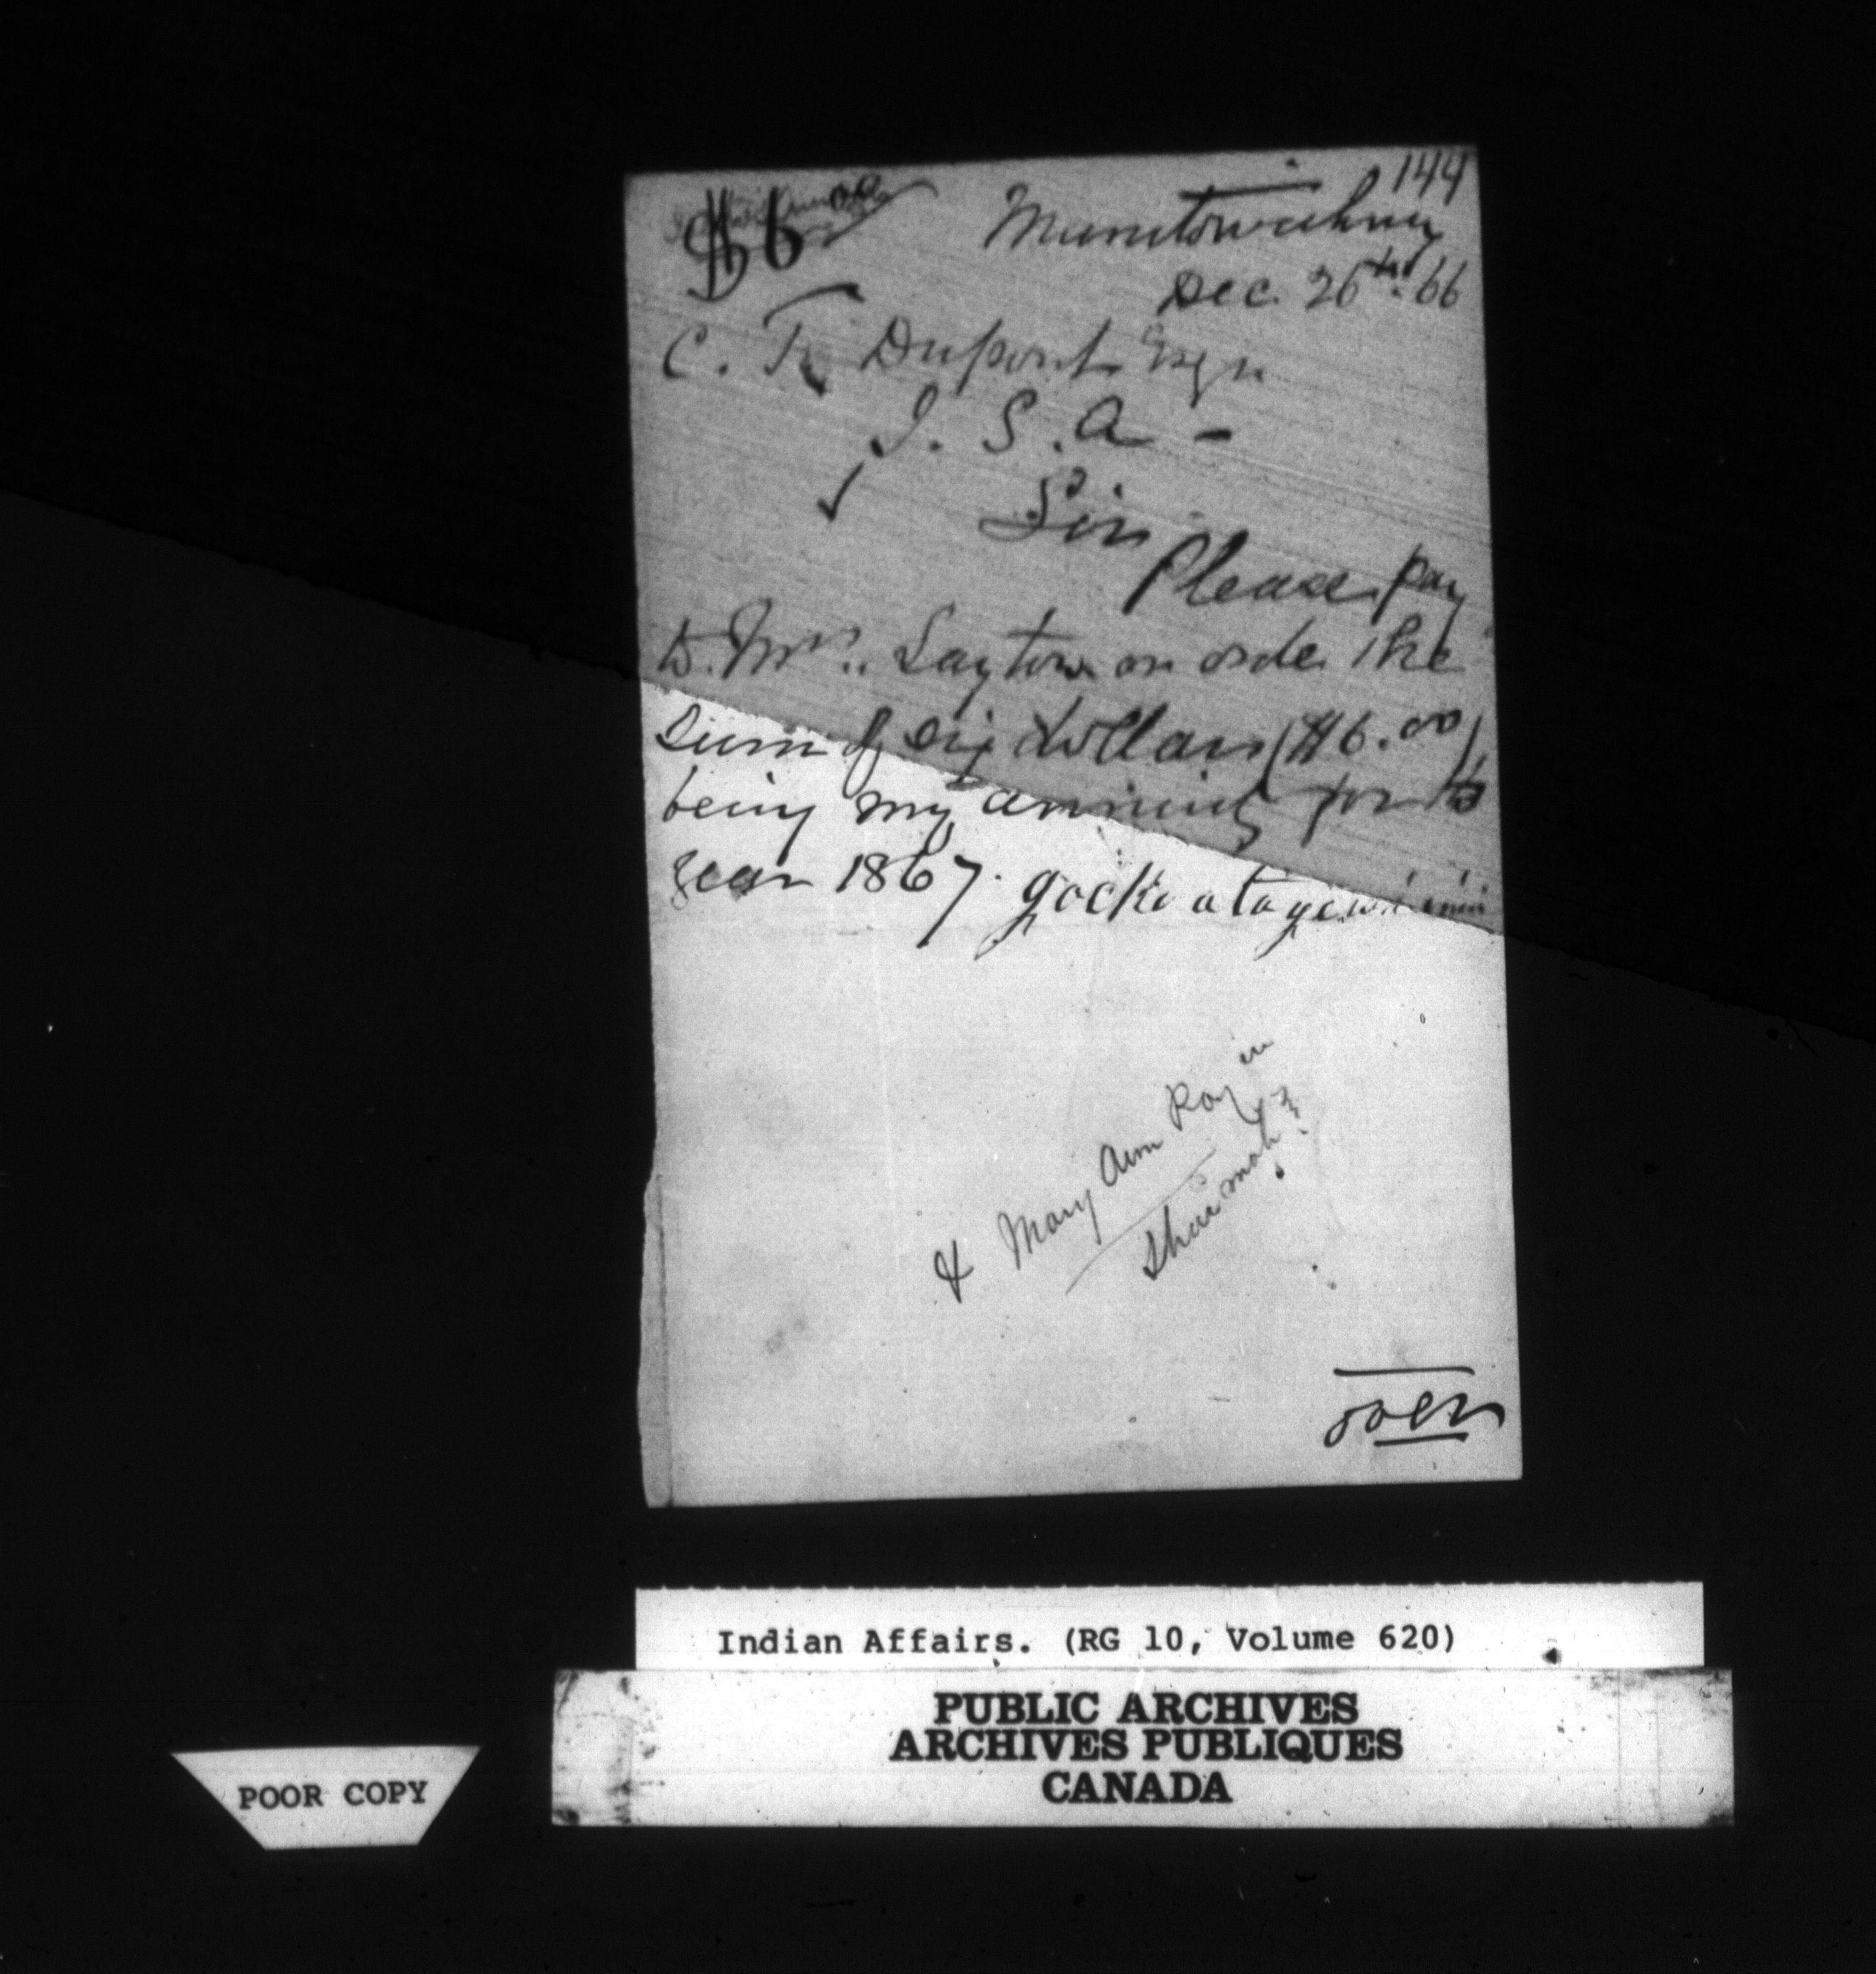 144
$6
Manitowaning
Dec. 26th. 66
C. T. Dupont Esqr
I. S. A -
Sir
Please pay
to Mrs. Layton or order the
Sum of Six dollars ($6.00)
being my annuity for the
year 1867. gocki atagewinini
& Mary Ann Ray in
over
Indian Affairs. (RG 10, Volume 620)
PUBLIC ARCHIVES
ARCHIVES PUBLIQUES
CANADA
POOR COPY